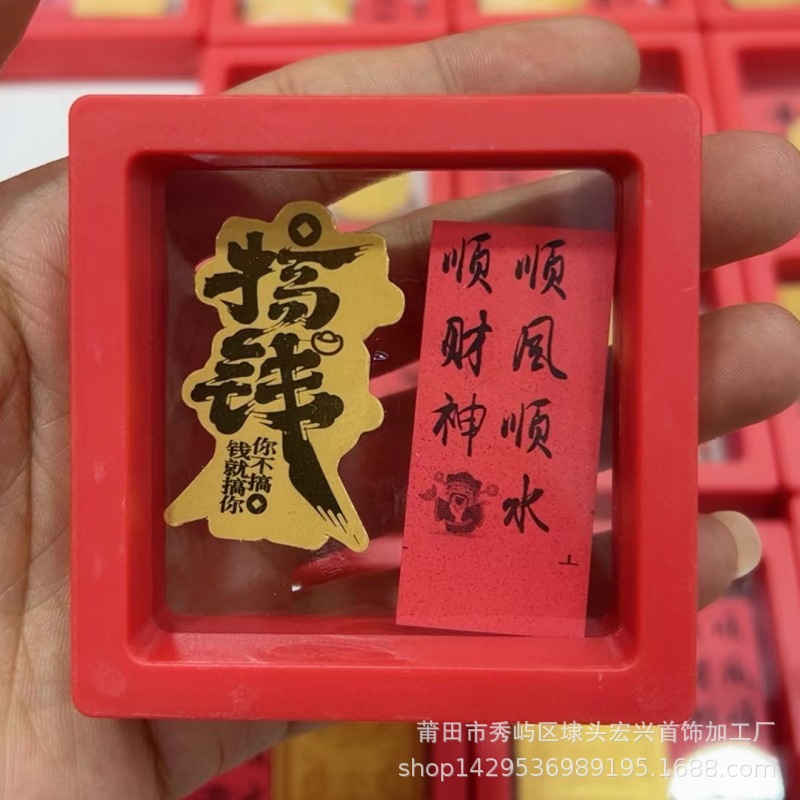 搞
钱
你不搞
钱就搞你
顺风顺水
顺财神
莆田市秀屿区埭头宏兴首饰加工厂
shop1429536989195.1688.com